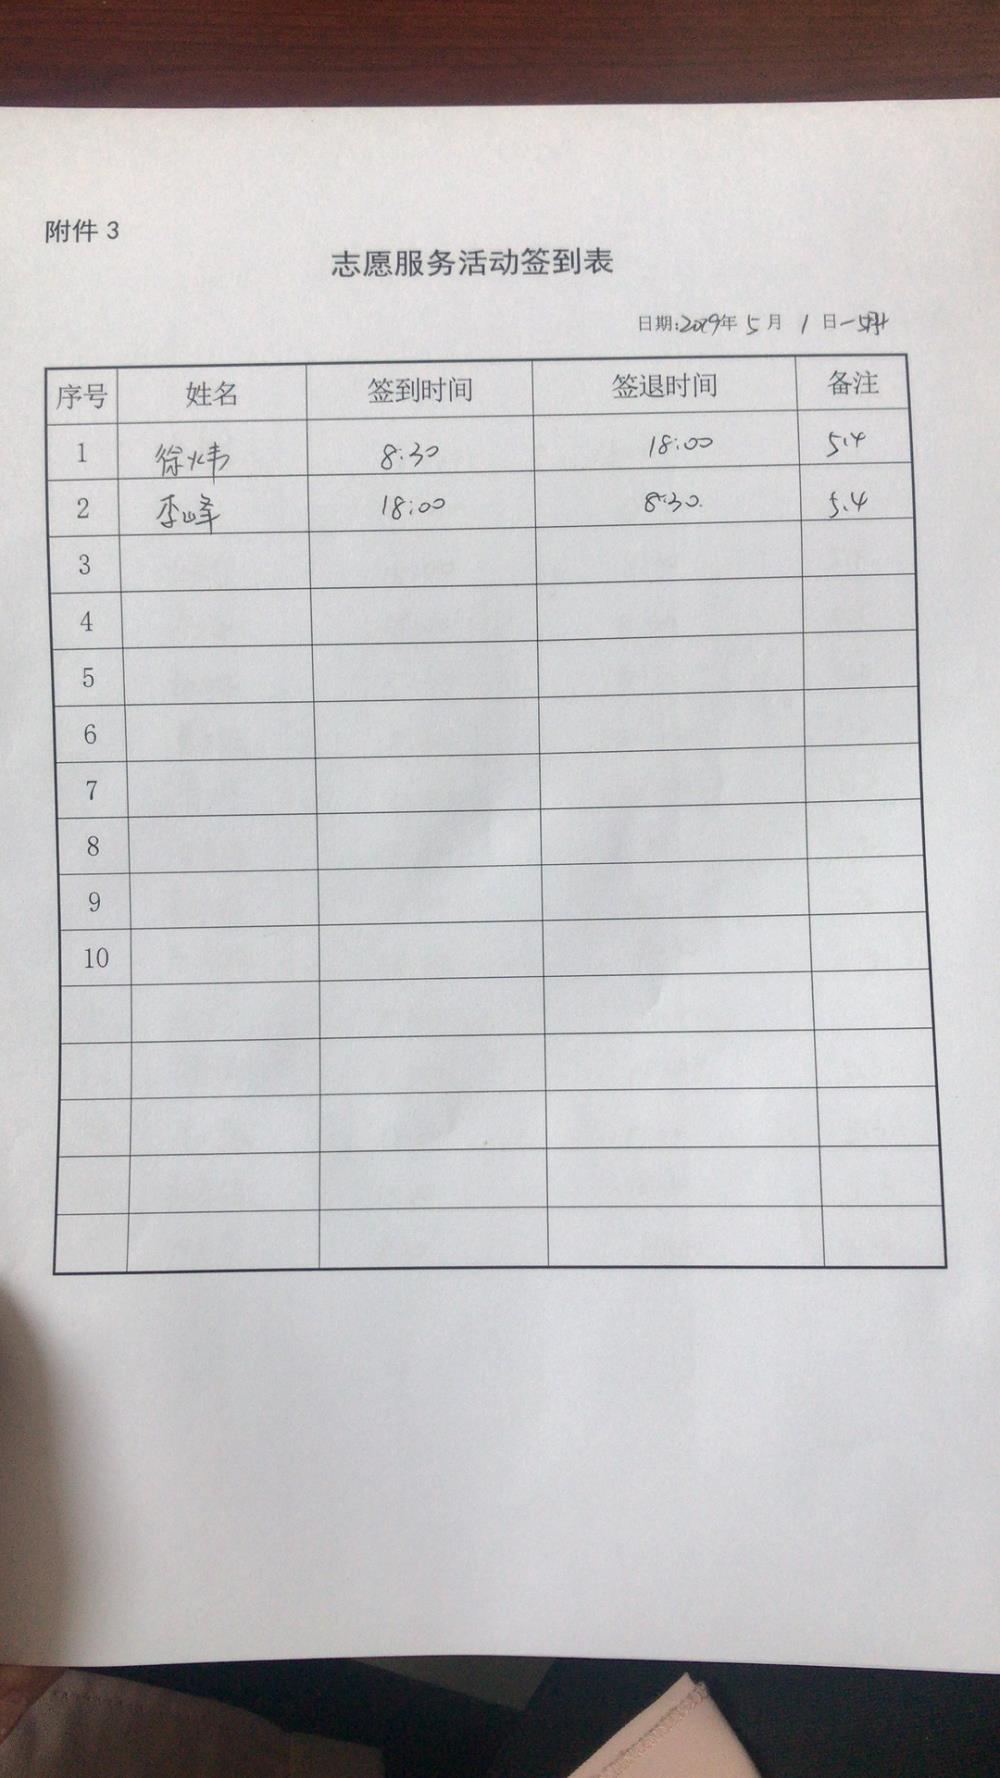 附件 3
志愿服务活动签到表
日期:2019年 5 月 1 日—5月4
序号 姓名 签到时间 签退时间 备注
1 徐炜 8:30 18:00 5.4
2 李峰 18:00 8:30. 5.4
3
4
5
6
7
8
9
10